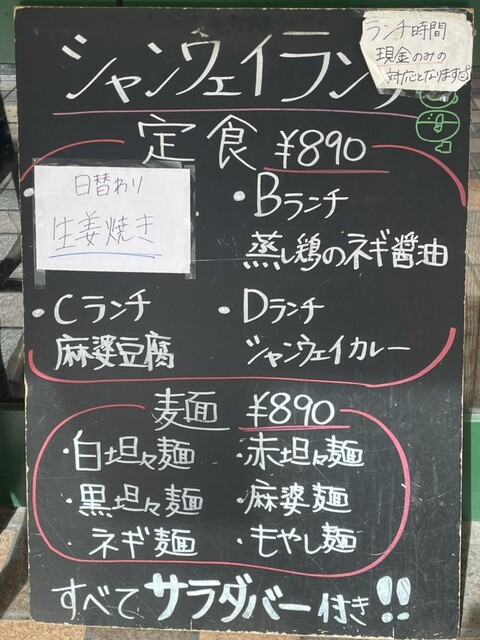 シャンウェイランチ
ランチ時間
現金のみの
対応となります
定食 ¥890
日替わり
生姜焼き
・Bランチ
蒸し鶏のネギ醤油
・Cランチ
麻婆豆腐
・Dランチ
シャンウェイカレー
麦面 ¥890
・白坦々麺
・赤坦々麺
・黒坦々麺
・麻婆麺
・ネギ麺
・もやし麺
すべてサラダバー付き!!